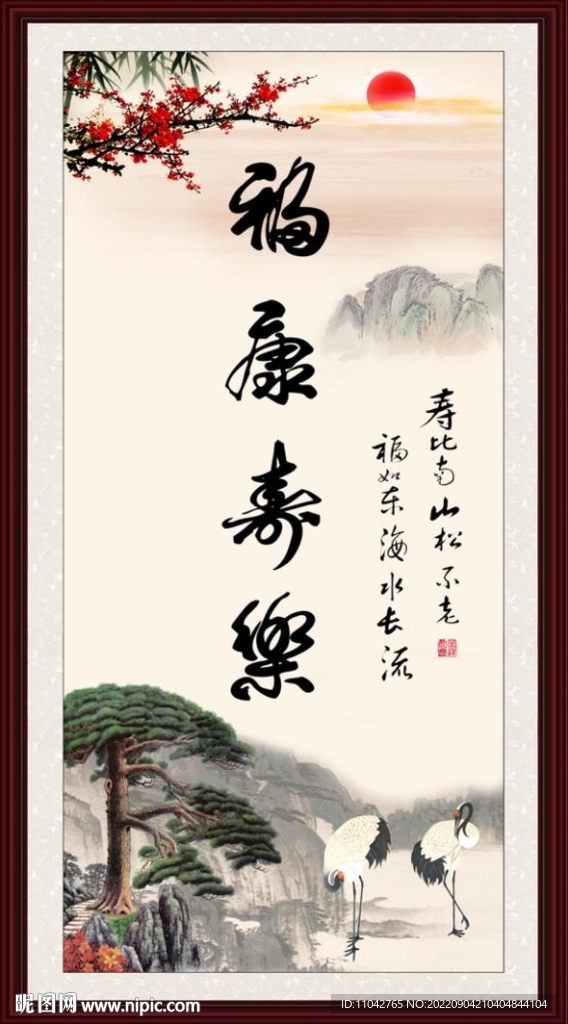 福康寿樂
寿比南山松不老
福如东海水长流
昵图网 www.nipic.com
ID:11042765 NO:20220904210404844104